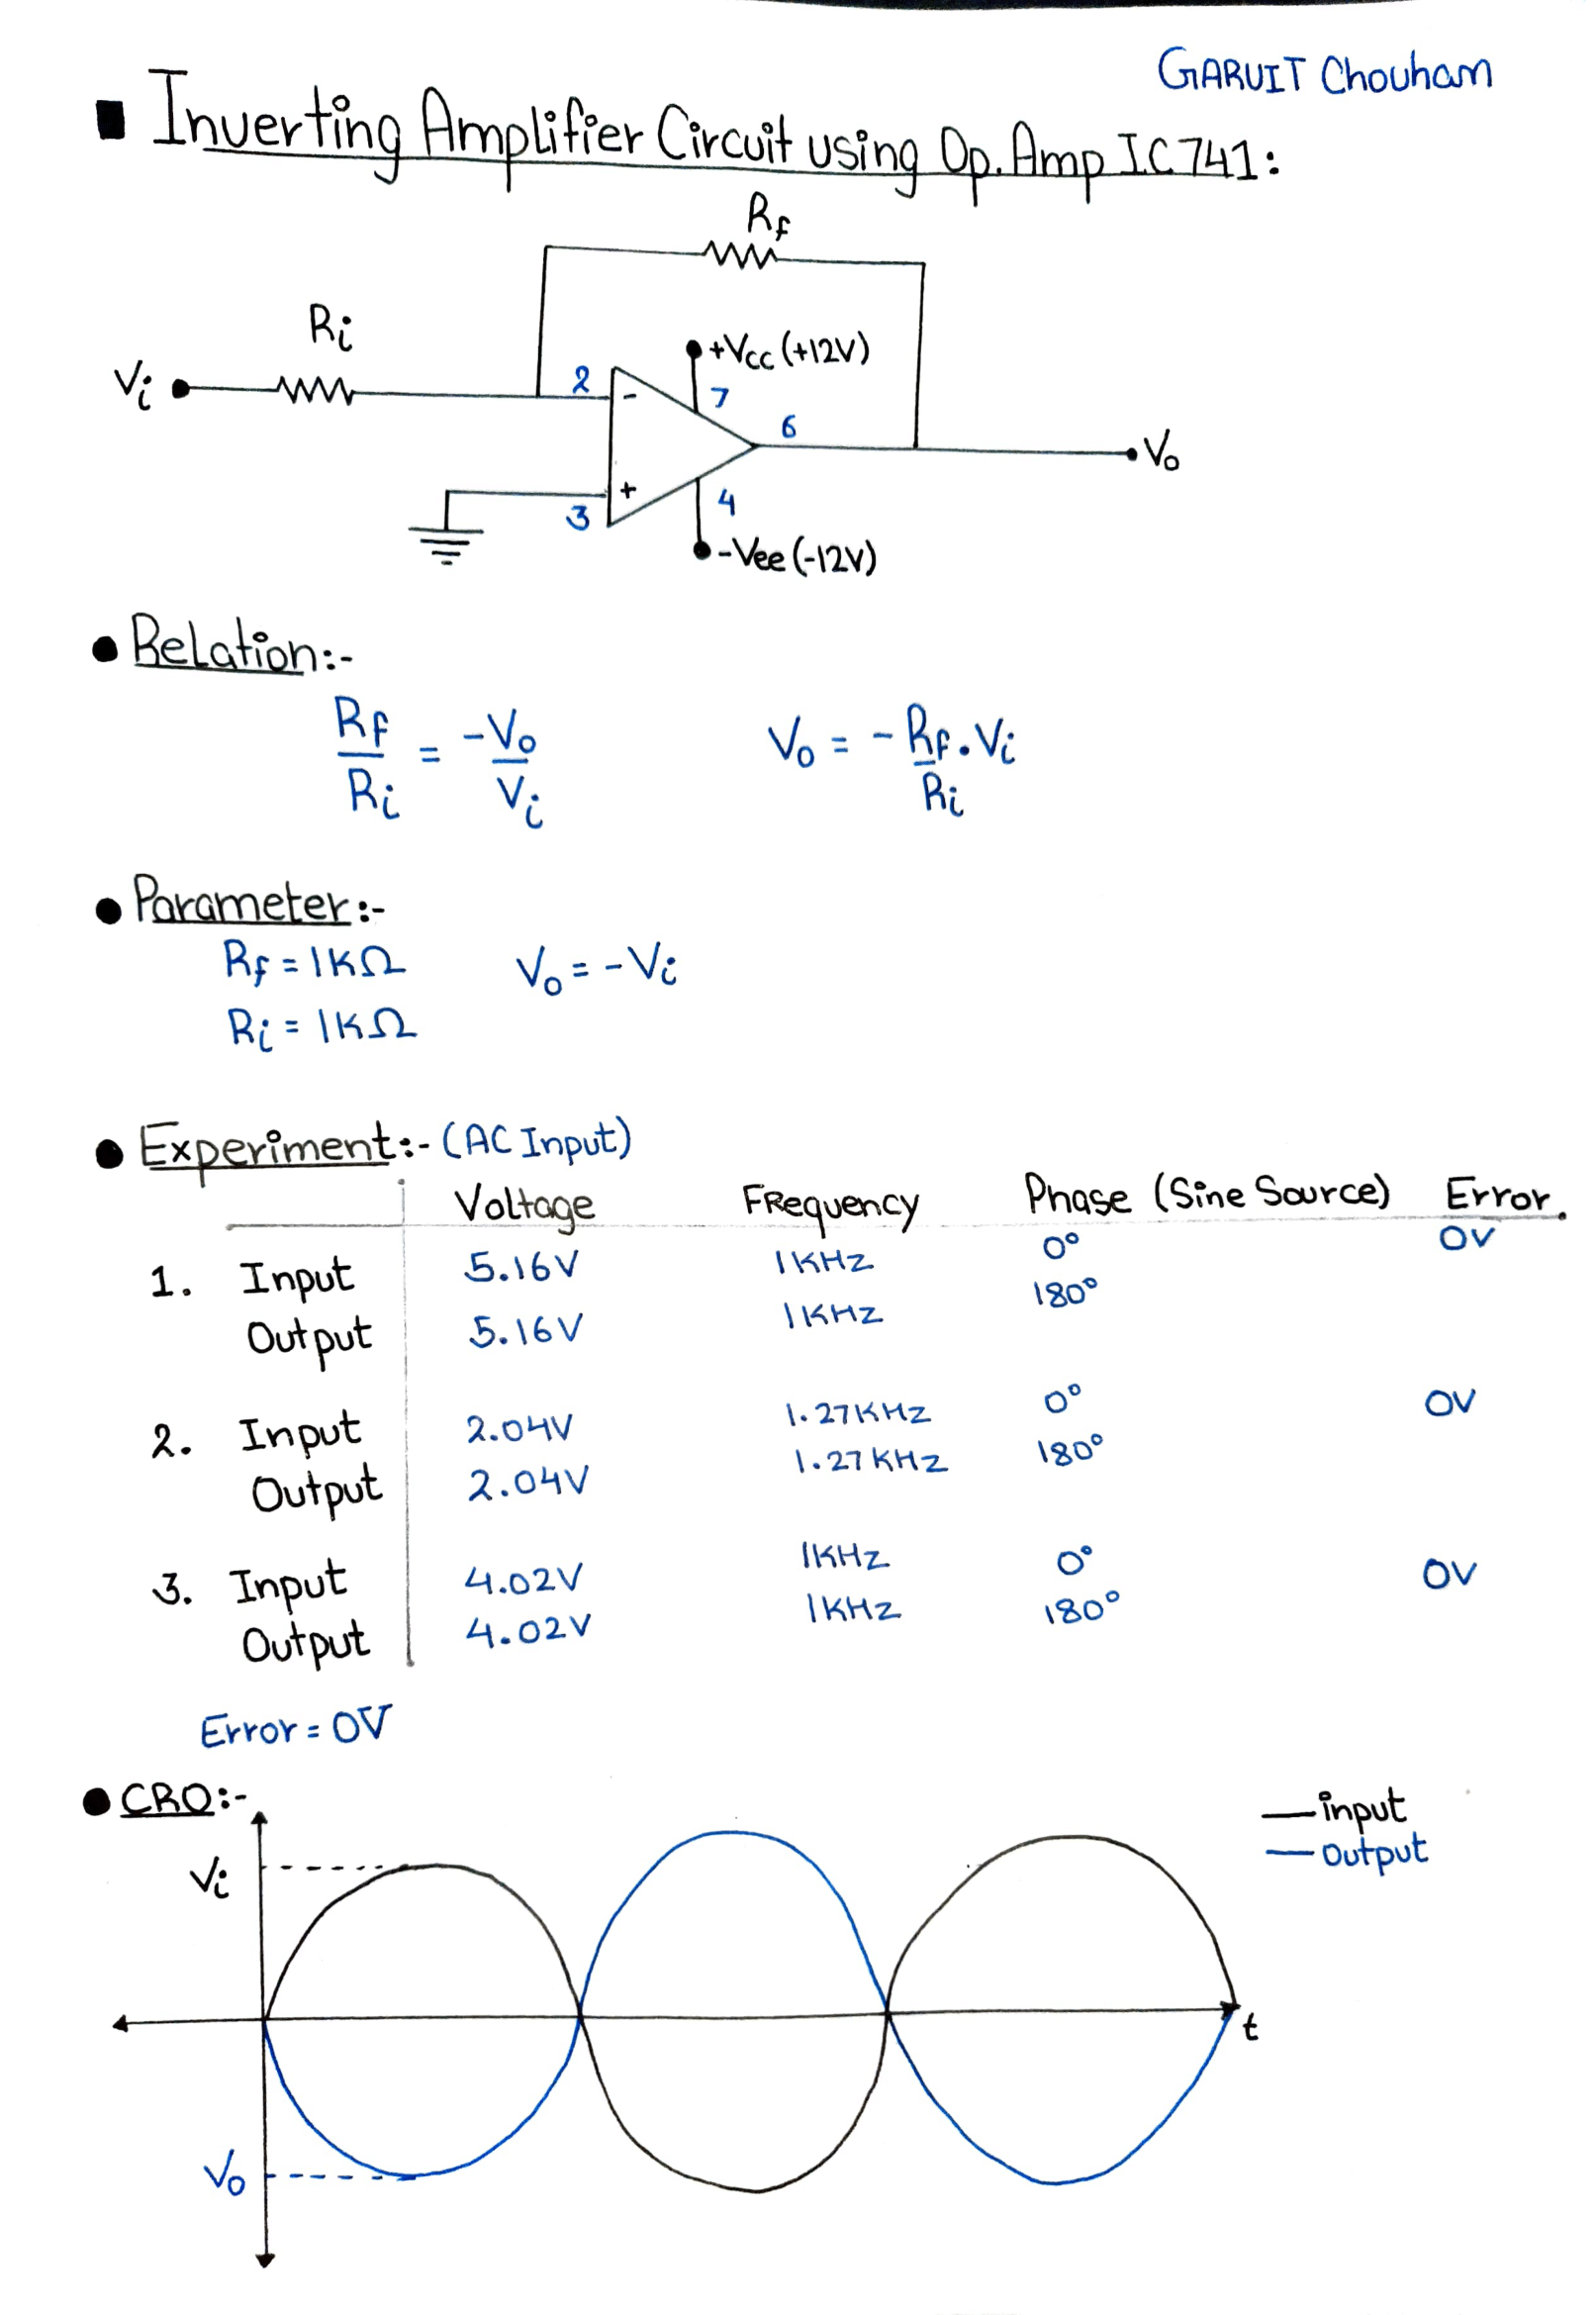 GARUIT Chouhan
Inverting Amplifier Circuit using Op.Amp I.C 741:
Rf
Ri
+Vcc (+12V)
Vi
2
-
7
6
Vo
+
4
3
-Vee (-12V)
Relation:-
Rf/Ri = -Vo/Vi    Vo = - Rf/Ri . Vi
Parameter:-
Rf = 1KΩ    Vo = - Vi
Ri = 1KΩ
Experiment:- (AC Input)
Voltage    Frequency    Phase (Sine Source)    Error.
1. Input    5.16V    1KHz    0°    0V
Output    5.16V    1KHz    180°
2. Input    2.04V    1.27KHz    0°    0V
Output    2.04V    1.27KHz    180°
3. Input    4.02V    1KHz    0°    0V
Output    4.02V    1KHz    180°
Error = 0V
CRO:-
input
Output
Vi
t
Vo